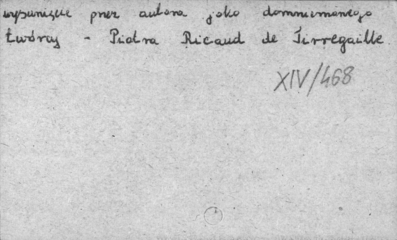 wysunięte przez autora jako domniemanego
twórcy - Piotra Ricaud de Tirregaille.
XIV/468